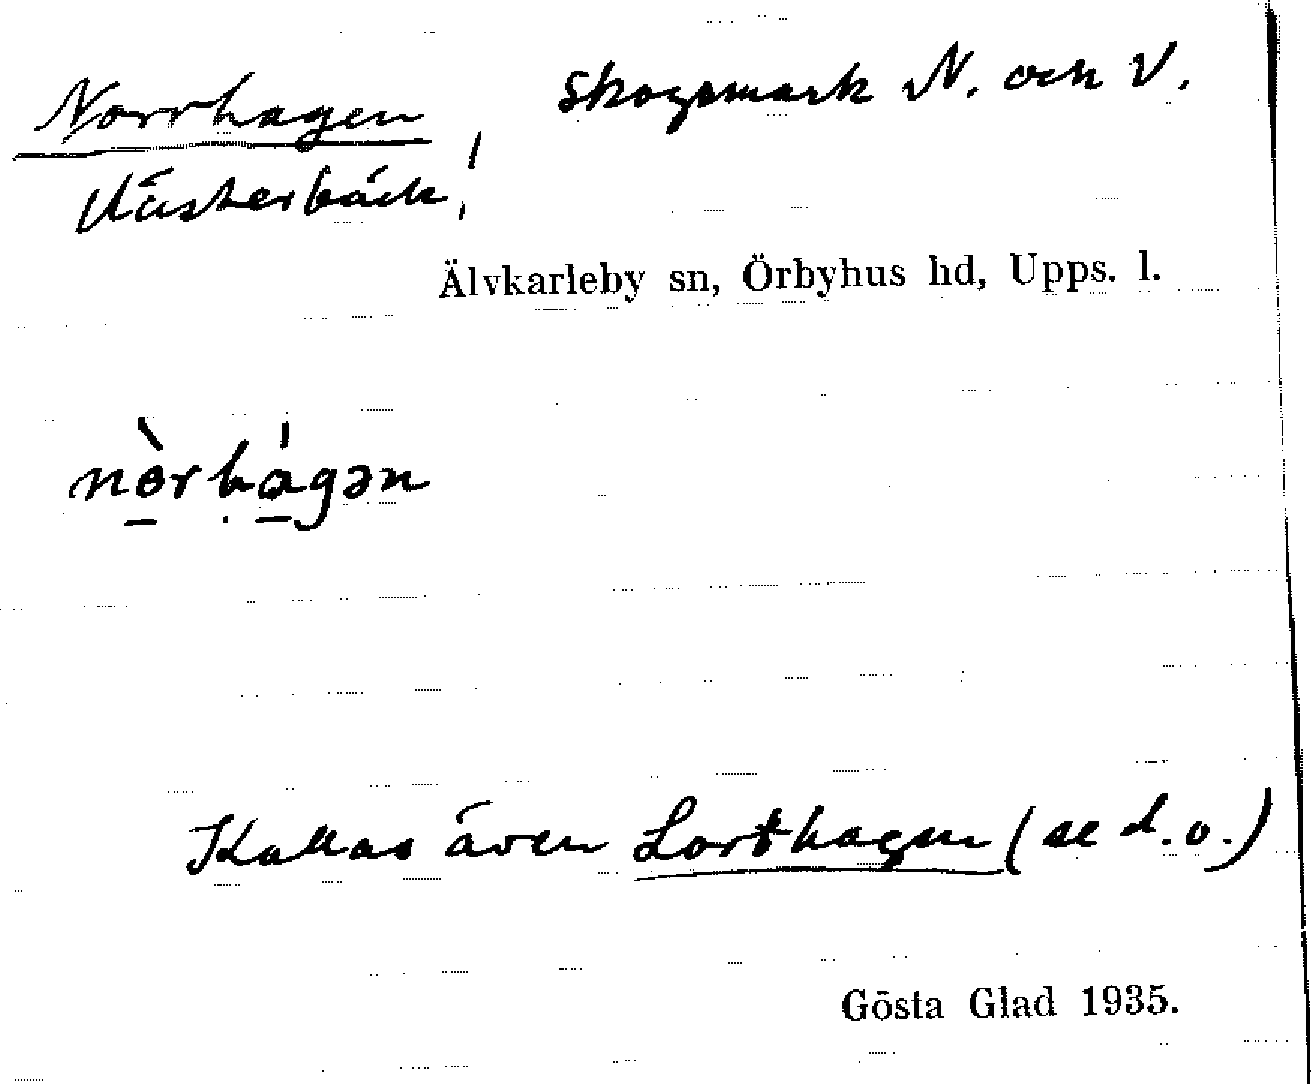 Norrhagen Skogsmark N. och V.
Västerbäck!
Älvkarleby sn, Örbyhus hd, Upps. l.
nòrhágən
Kallas även Lorthagen (se d.o.)
Gösta Glad 1935.